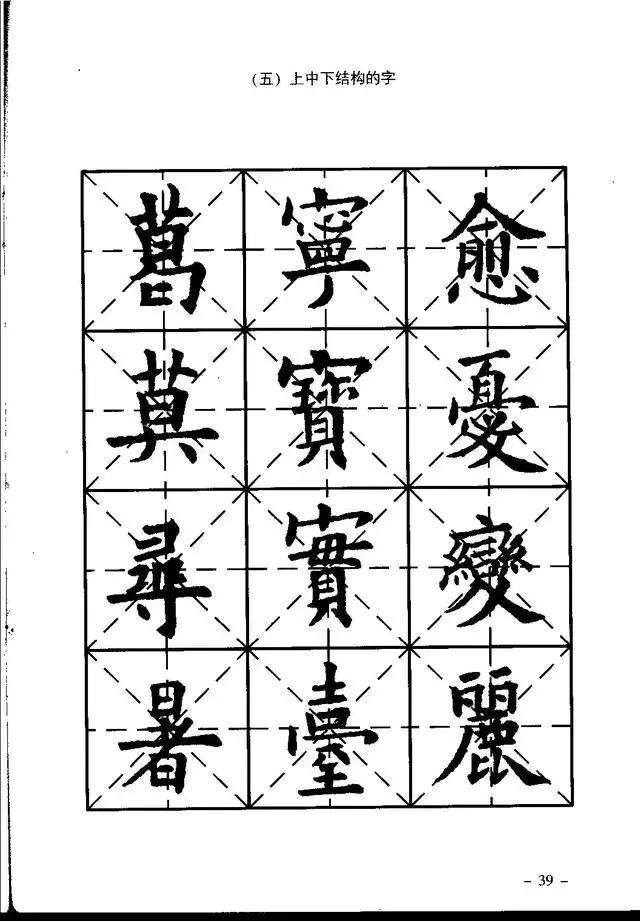 （五）上中下结构的字
愈憂變麗
寧寶實臺
葛莫尋暑
- 39 -